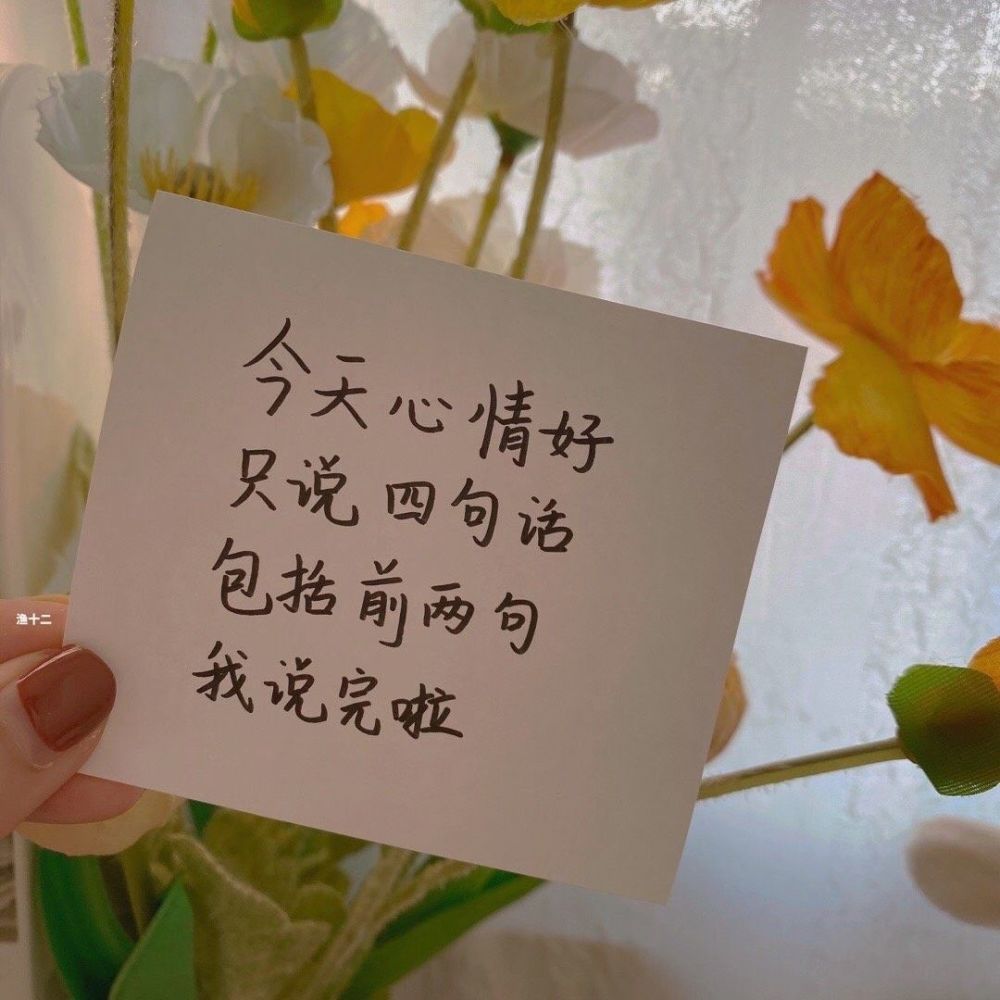 今天心情好
只说四句话
包括前两句
我说完啦
渔十二